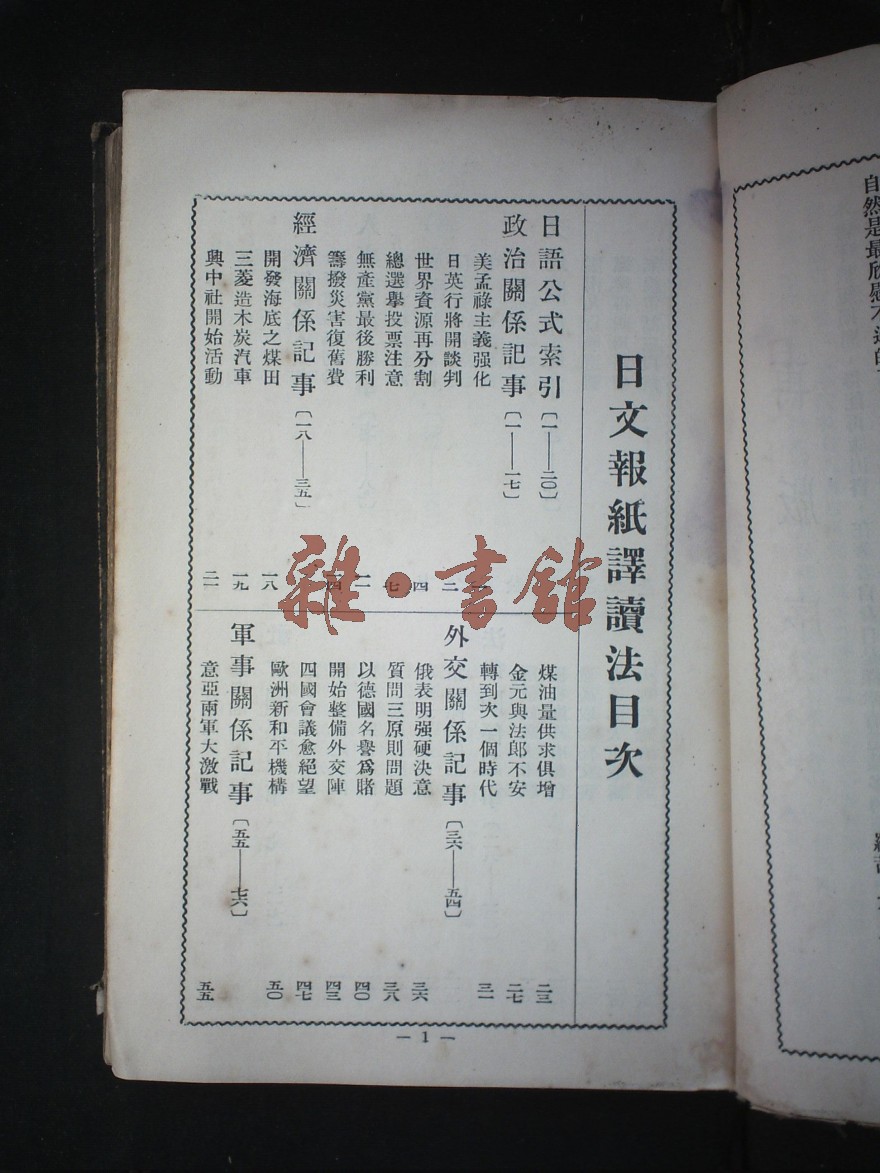 自然是最欣慰不過的
日文報紙譯讀法目次
日語公式索引〔一——二〇〕
政治關係記事〔一——一七〕
美孟祿主義强化
日英行將開談判 二
世界資源再分割 四
總選舉投票注意 七
無產黨最後勝利 一一
籌撥災害復舊費 一四
經濟關係記事〔一八——三五〕
開發海底之煤田 一八
三菱造木炭汽車 一九
興中社開始活動 二一
煤油量供求俱增 二三
金元與法郎不安 二七
轉到次一個時代 三一
外交關係記事〔三六——五四〕
俄表明强硬決意 三六
質問三原則問題 三八
以德國名譽爲賭 四〇
開始整備外交陣 四三
四國會議愈絕望 四七
歐洲新和平機構 五〇
軍事關係記事〔五五——七六〕
意亞兩軍大激戰 五五
— 1 —
雜·書館